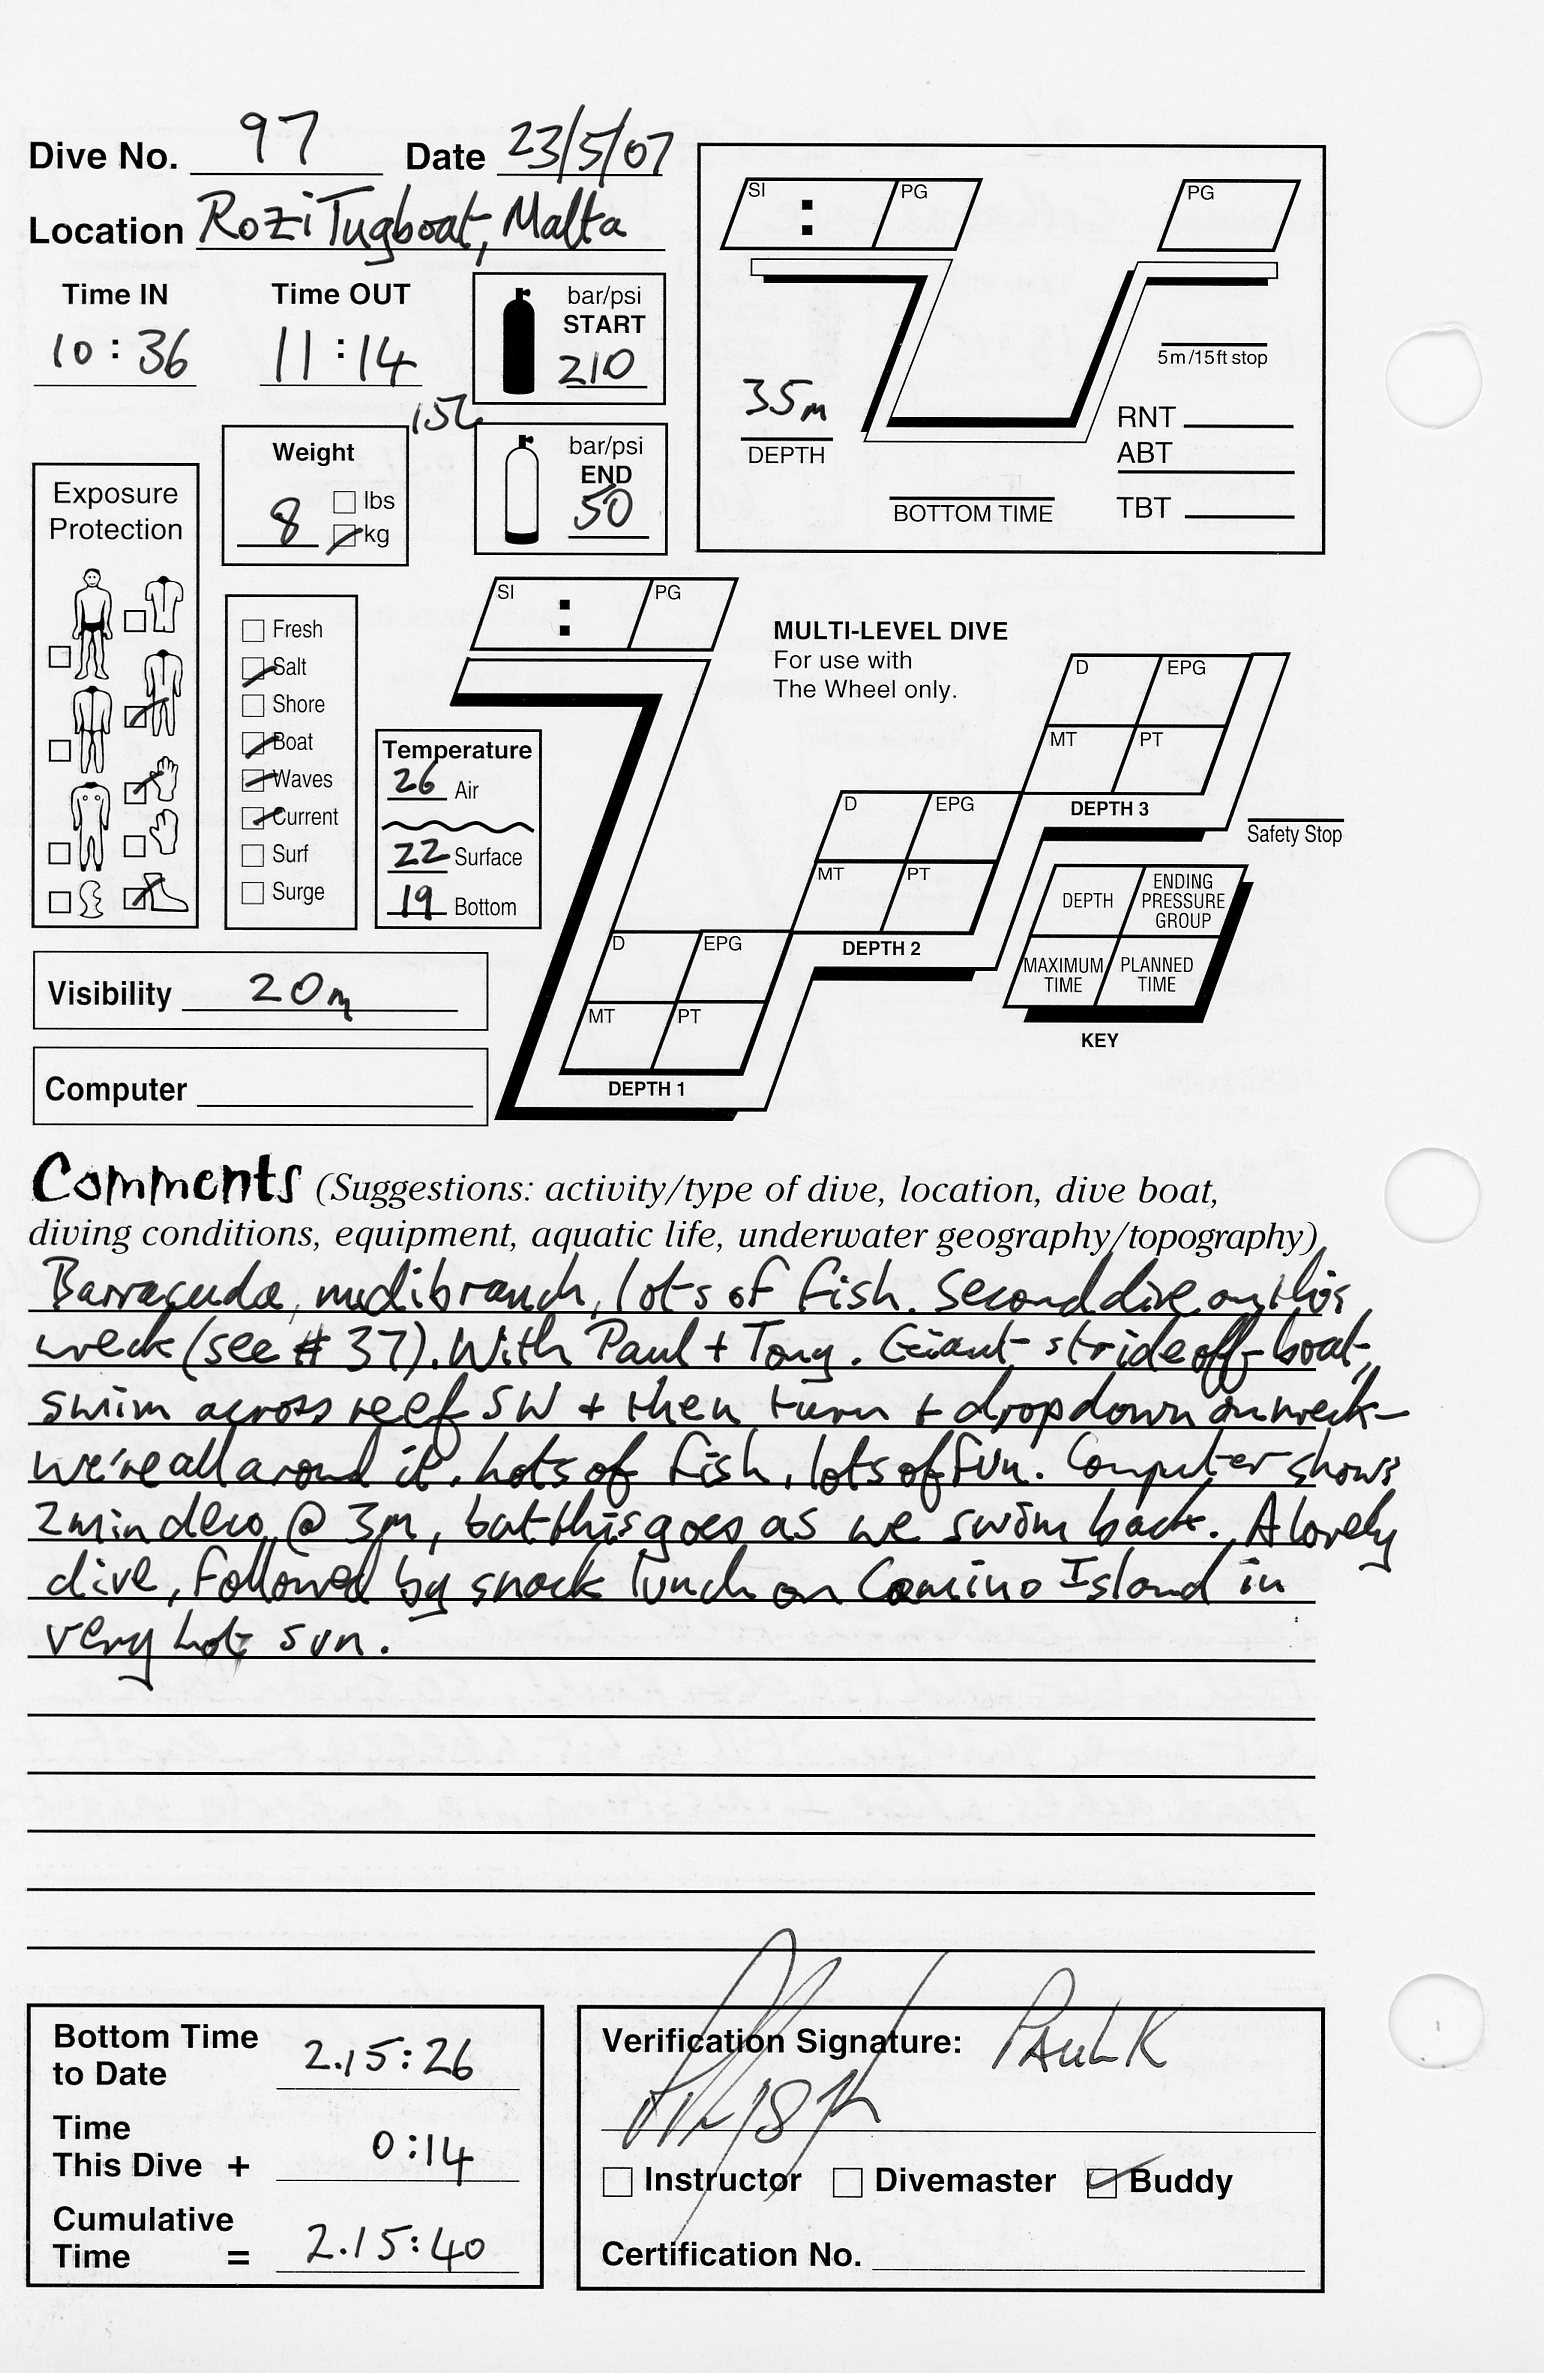 Dive No. 97 Date 23/5/07
Location Rozi Tugboat, Malta
Time IN Time OUT
10:36 11:14
bar/psi
START
210
15L
bar/psi
END
50
Weight
8 lbs
kg
Exposure
Protection
Fresh
Salt
Shore
Boat
Waves
Current
Surf
Surge
Temperature
26 Air
22 Surface
19 Bottom
Visibility 20m
Computer
SI : PG
PG
35m
DEPTH
BOTTOM TIME
5m/15ft stop
RNT
ABT
TBT
SI : PG
MULTI-LEVEL DIVE
For use with
The Wheel only.
D EPG
MT PT
DEPTH 3
D EPG
MT PT
DEPTH 2
D EPG
MT PT
DEPTH 1
Safety Stop
DEPTH
ENDING
PRESSURE
GROUP
MAXIMUM
TIME
PLANNED
TIME
KEY
Comments (Suggestions: activity/type of dive, location, dive boat,
diving conditions, equipment, aquatic life, underwater geography/topography)
Barracuda, nudibranch, lots of fish. Second dive on this
wreck (see # 37). With Paul + Tony. Giant stride off boat,
swim across reef SW + then turn + drop down on wreck –
we're all around it. Lots of fish, lots of fun. Computer shows
2 min deco @ 3m, but this goes as we swim back. A lovely
dive, followed by snack lunch on Comino Island in
very hot sun.
Bottom Time
to Date 2.15:26
Time
This Dive + 0:14
Cumulative
Time = 2.15:40
Verification Signature: PAUL K
Instructor Divemaster Buddy
Certification No.